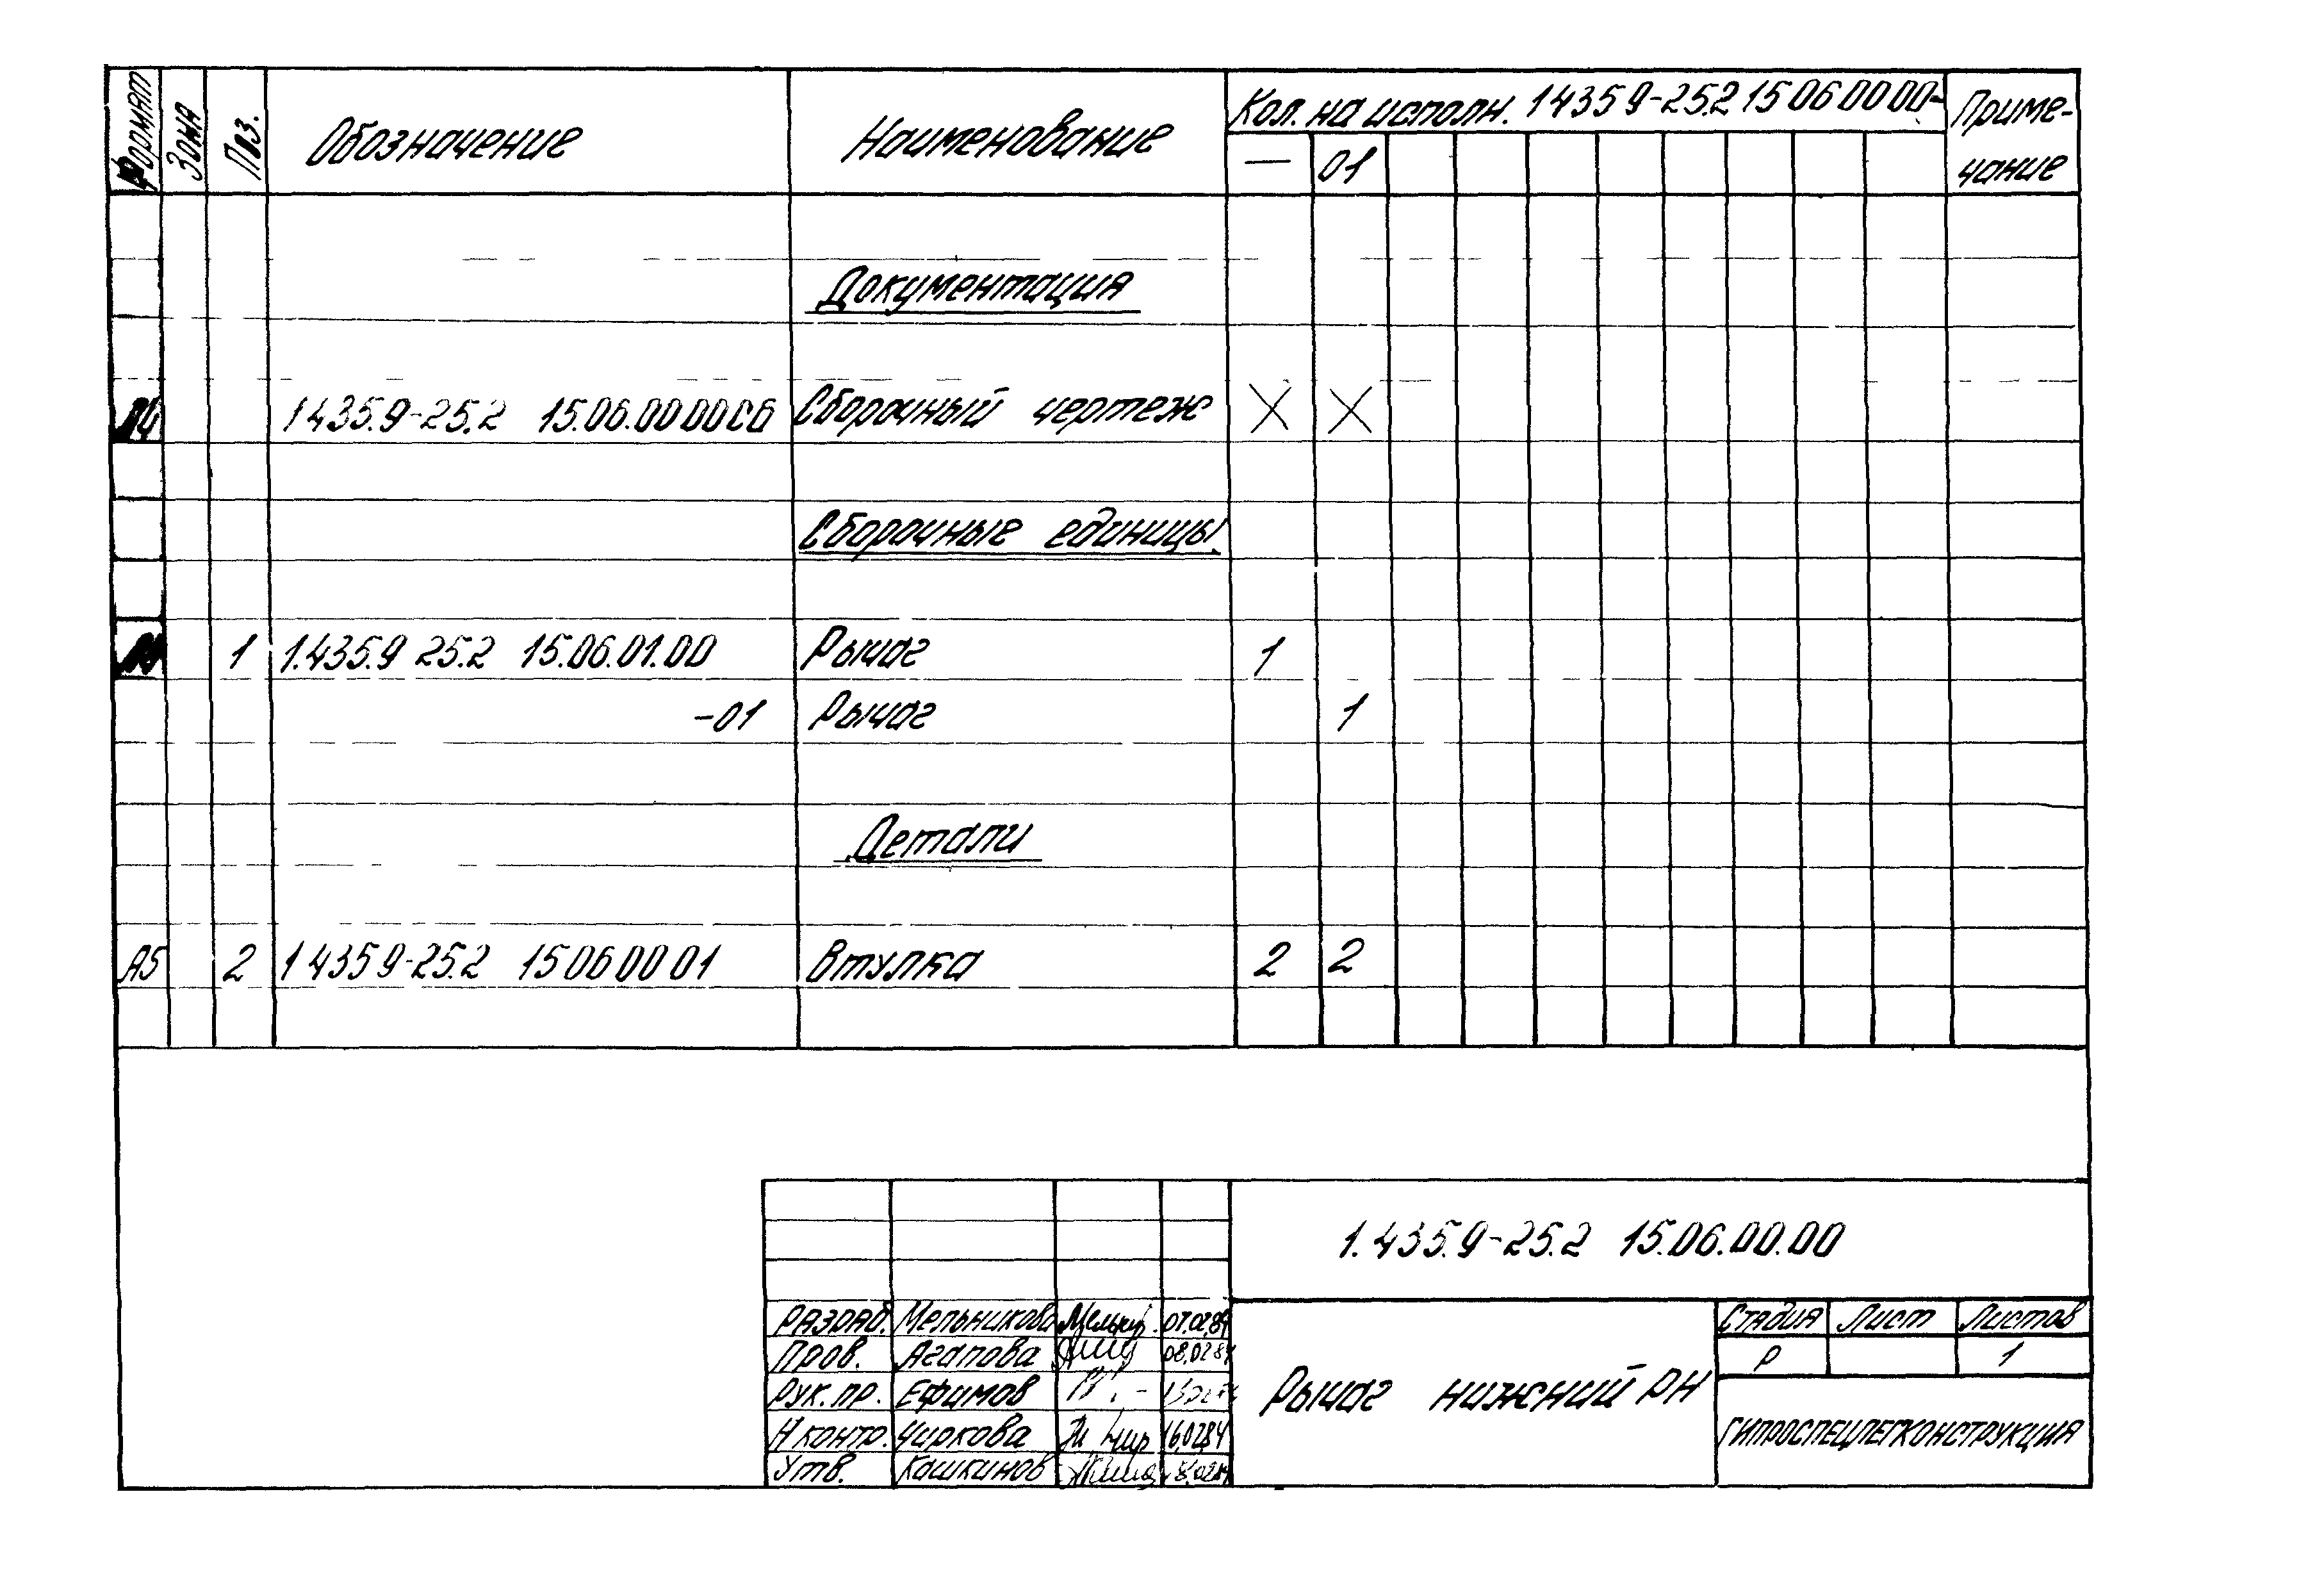 Формат Зона Поз. Обозначение Наименование Кол. на исполн. 1435 9-25.2 15 06 00 00- Приме-
— 01 чание
Документация
1 435.9-25.2 15.06.00 00СБ Сборочный чертеж X X
Сборочные единицы
1 1.435.9 25.2 15.06.01.00 Рычаг 1
-01 Рычаг 1
Детали
А5 2 1 435 9-25.2 15 06 00 01 Втулка 2 2
1.435.9-25.2 15.06.00.00
Разраб. Мельникова 07.02.84
Пров. Агапова 08.02 84
Рук. пр. Ефимов
Н контр. Чиркова 16.02.84
Утв. Кашкинов
Рычаг нижний РН
Стадия Лист Листов
Р 1
ГИПРОСПЕЦЛЕГКОНСТРУКЦИЯ